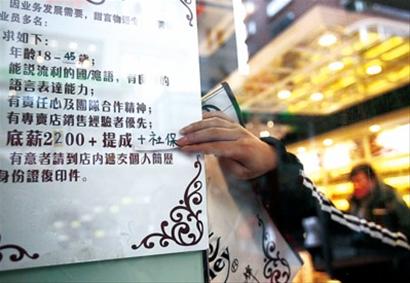 因业务发展需要,
业员多名:
求如下:
年龄18-45歲;
能説流利的國/滬語,有
語言表達能力;
有責任心及團隊合作精神;
有專賣店銷售經驗者優先;
底薪2200+提成+社保
有意者請到店内遞交個人簡歷
身份證復印件。